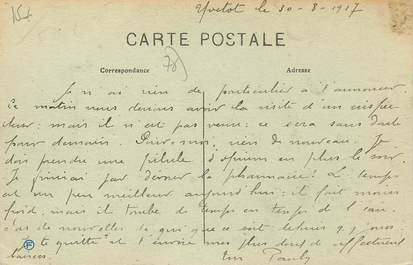 Yvetot le 30-8-1917
CARTE POSTALE
78
Correspondance
Adresse
Je n ai rien de particulier à t'annoncer.
Ce matin nous devions avoir la visite d'un inspec
teur; mais il n est pas venu: ce sera sans doute
pour demain. rien de nouveau. Je
dois prendre une pilule d'opium en plus le soir.
Je finirai par la pharmacie! Le temps
est un peu meilleur aujourd'hui: il fait moins
froid, mais il tombe de temps en temps de l'eau.
pas de nouvelles ce qui que ce soit depuis 4 jours
te quitte et t'envoie mes plus doux et affectueux
baisers.